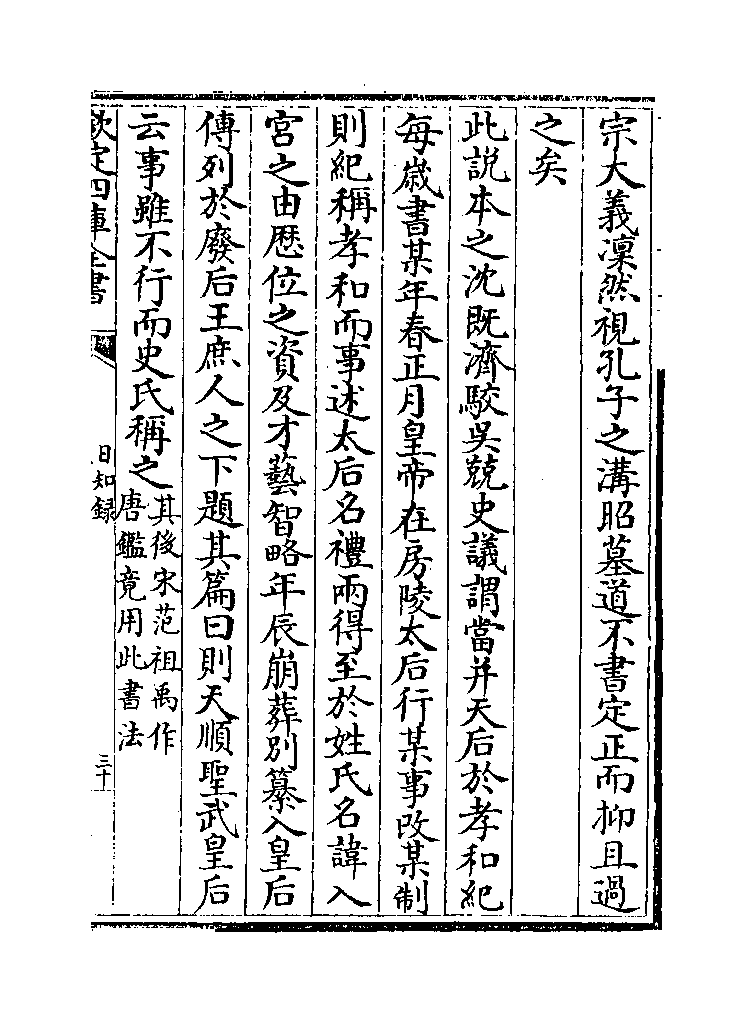 宗大義凜然視孔子之溝昭墓道不書定正而抑且過
之矣
此説本之沈既濟駮吳兢史議謂當并天后於孝和紀
每歲書某年春正月皇帝在房陵太后行某事改某制
則紀稱孝和而事述太后名禮兩得至於姓氏名諱入
宮之由厯位之資及才藝智略年辰崩葬別纂入皇后
傳列於廢后王庶人之下題其篇曰則天順聖武皇后
云事雖不行而史氏稱之其後宋范祖禹作
唐鑑竟用此書法
欽定四庫全書
日知録
三十